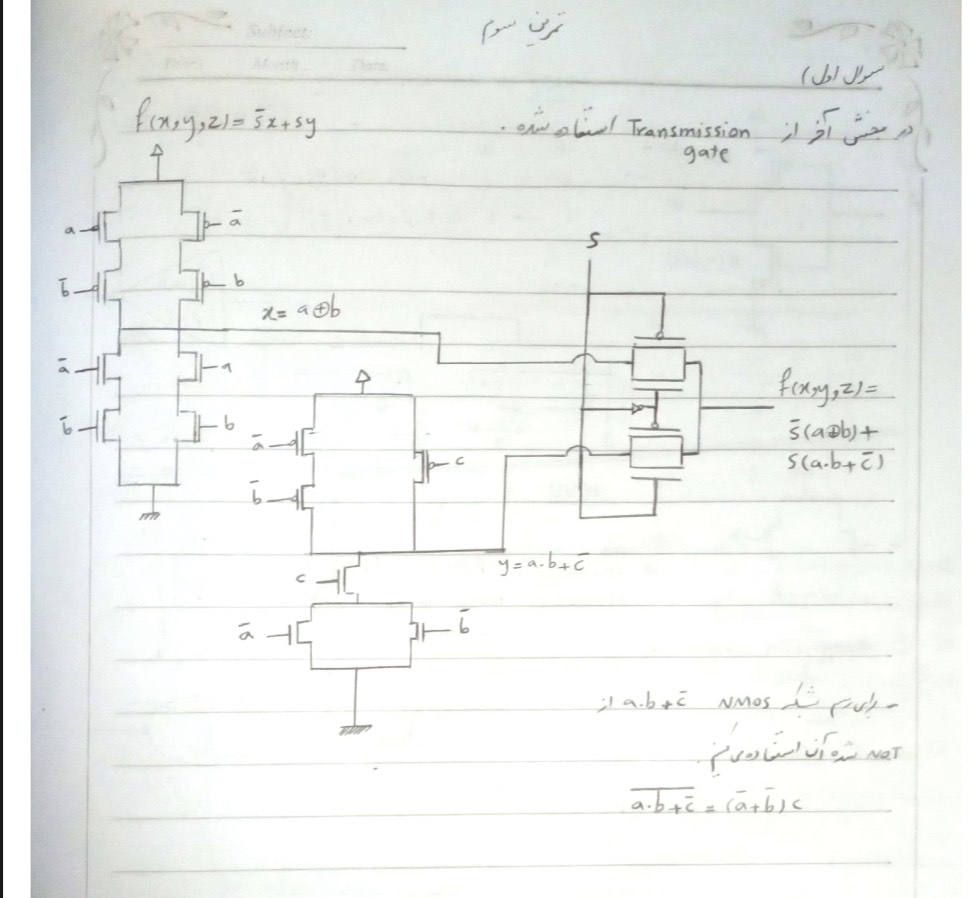 Subject:
Year: Month: Date:
تمرین سوم
سوال اول)
در بخش آخر از Transmission gate استفاده شده.
f(x,y,z)= s̄x+sy
a
ā
b̄
b
x= a⊕b
ā
a
b̄
b
S
ā
c
b̄
f(x,y,z)=
s̄(a⊕b)+
s(a.b+c̄)
y=a.b+c̄
c
ā
b̄
- برای رسم شبکه NMOS a.b+c̄ از
NOT شده آن استفاده می‌کنیم.
\overline{a.b+c̄} = (ā+b̄)c